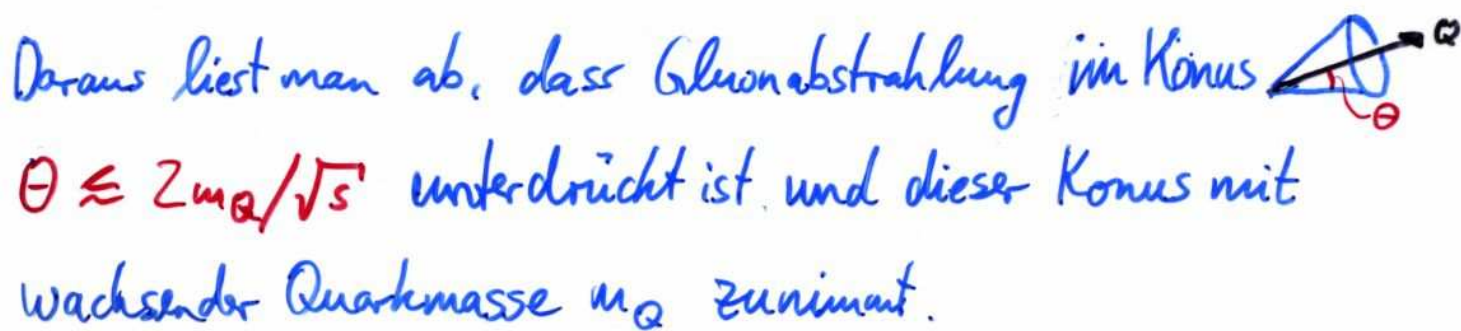 Daraus liest man ab, dass Gluonabstrahlung im Konus Q
θ
θ ≲ 2m_Q/√s unterdrückt ist und dieser Konus mit
wachsender Quarkmasse m_Q zunimmt.